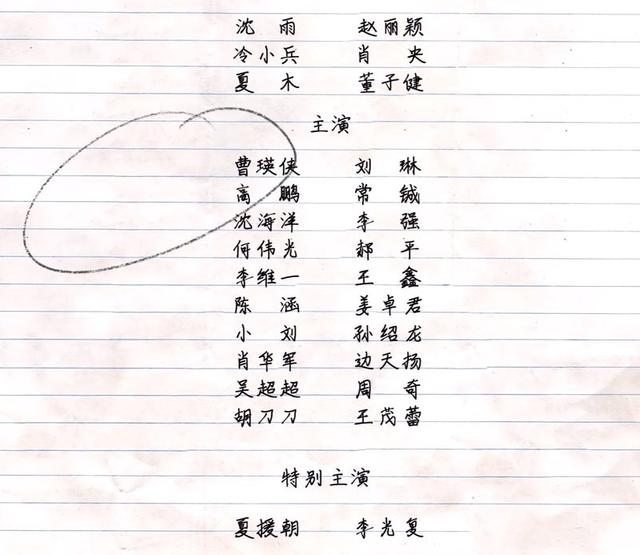 沈雨 赵丽颖
冷小兵 肖央
夏木 董子健
主演
曹瑛侠 刘琳
高鹏 常铖
沈海洋 李强
何伟光 郝平
李维一 王鑫
陈涵 姜卓君
小刘 孙绍龙
肖华军 边天扬
吴超超 周奇
胡刀刀 王茂蕾
特别主演
夏援朝 李光复